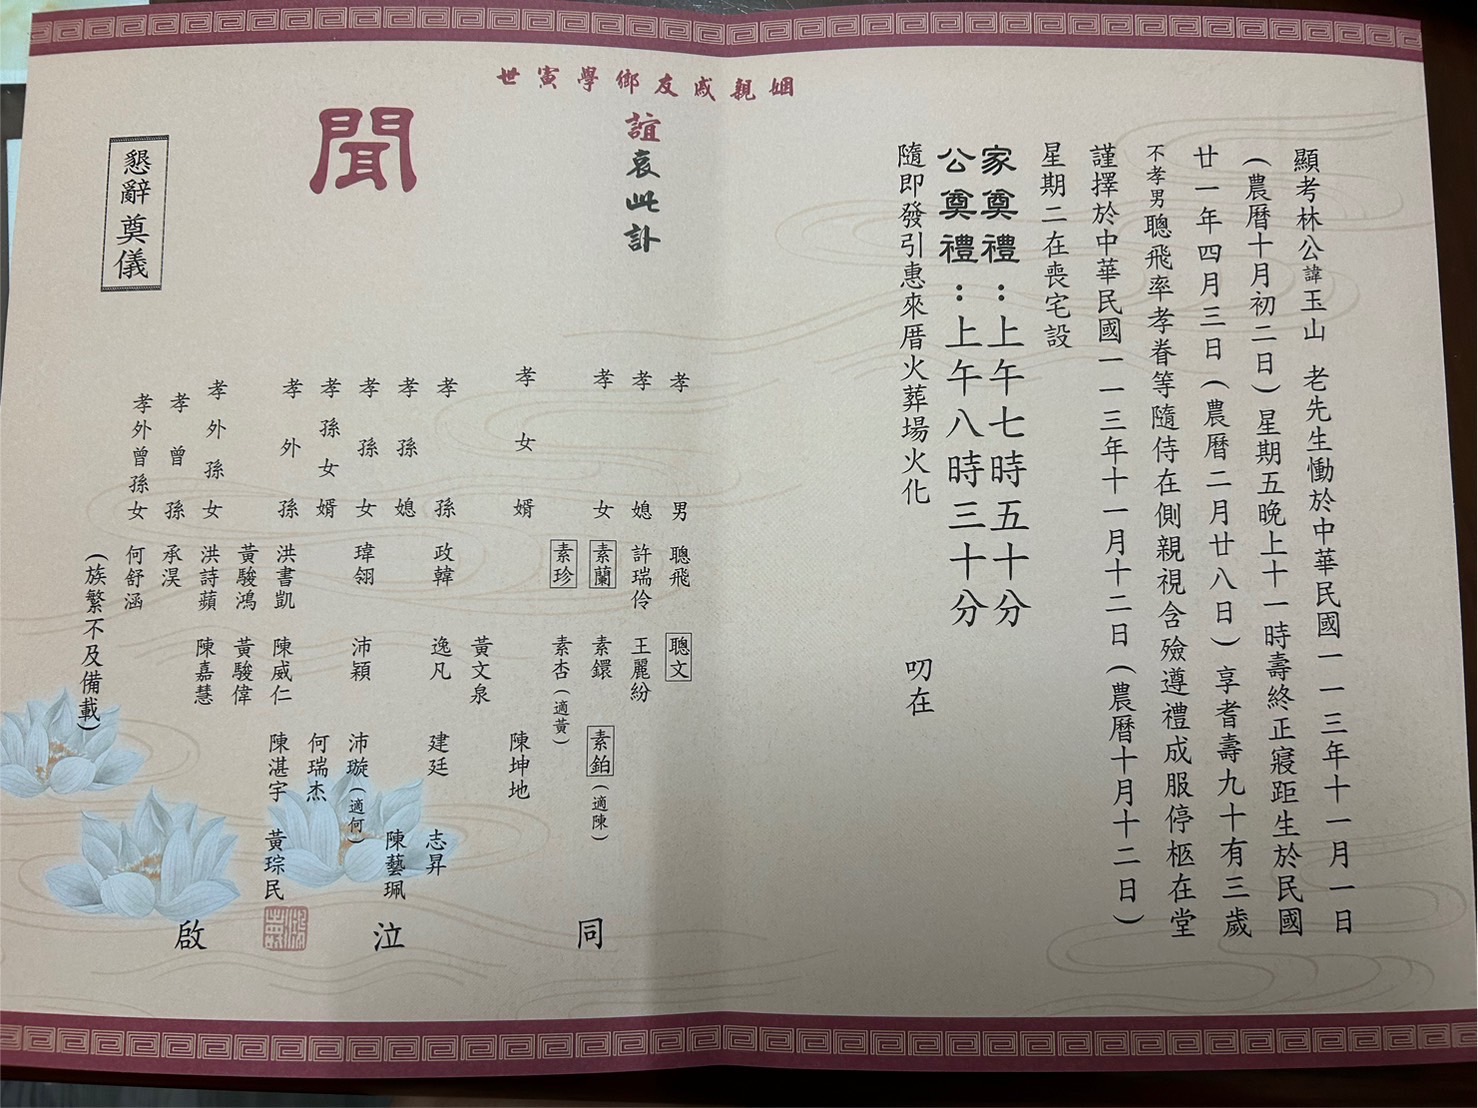 顯考林公諱玉山　老先生慟於中華民國一一三年十一月一日
(農曆十月初二日)星期五晚上十一時壽終正寢距生於民國
廿一年四月三日(農曆二月廿八日)享耆壽九十有三歲
不孝男聰飛率孝眷等隨侍在側親視含殮遵禮成服停柩在堂
謹擇於中華民國一一三年十一月十二日(農曆十月十二日)
星期二在喪宅設
家奠禮：上午七時五十分
公奠禮：上午八時三十分
隨即發引惠來厝火葬場火化　叨在
姻親戚友鄉學寅世
誼哀此訃
聞
孝男　聰飛　聰文
孝媳　許瑞伶　王麗紛
孝女　素蘭　素鐶　素鉑(適陳)
素珍　素杏(適黃)
孝女婿　陳坤地
黃文泉
孝孫　政韓　逸凡　建廷　志昇
孝孫媳　陳藝珮
孝孫女　瑋翎　沛穎　沛璇(適何)
孝孫女婿　何瑞杰
孝外孫　洪書凱　陳威仁　陳湛宇　黃琮民
黃駿鴻　黃駿偉
孝外孫女　洪詩蘋　陳嘉慧
孝曾孫　承淏
孝外曾孫女　何舒涵
(族繁不及備載)
同
泣
啟
懇辭奠儀